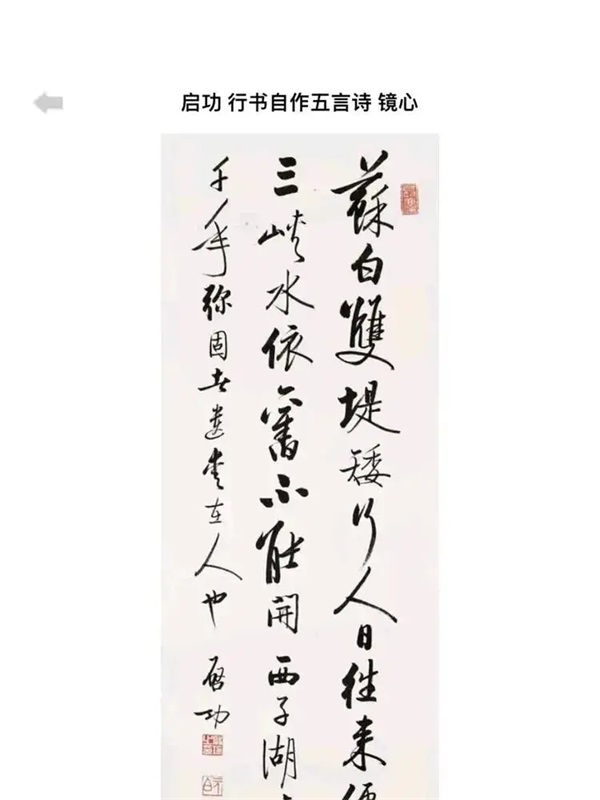 启功 行书自作五言诗 镜心
蘇白雙堤矮行人日往来
三峽水依舊不能開 西子湖
千年弥固者遗爱在人也 启功